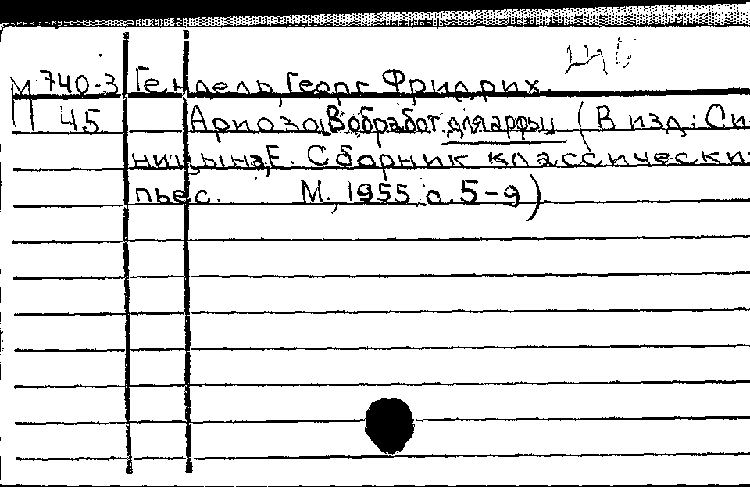 М 740-3 Гендель, Георг Фридрих.
45 Ариоза. В обработ. для арфы (В изд.: Си-
ницына, Е. Сборник классически
пьес. М., 1955, с. 5-9)